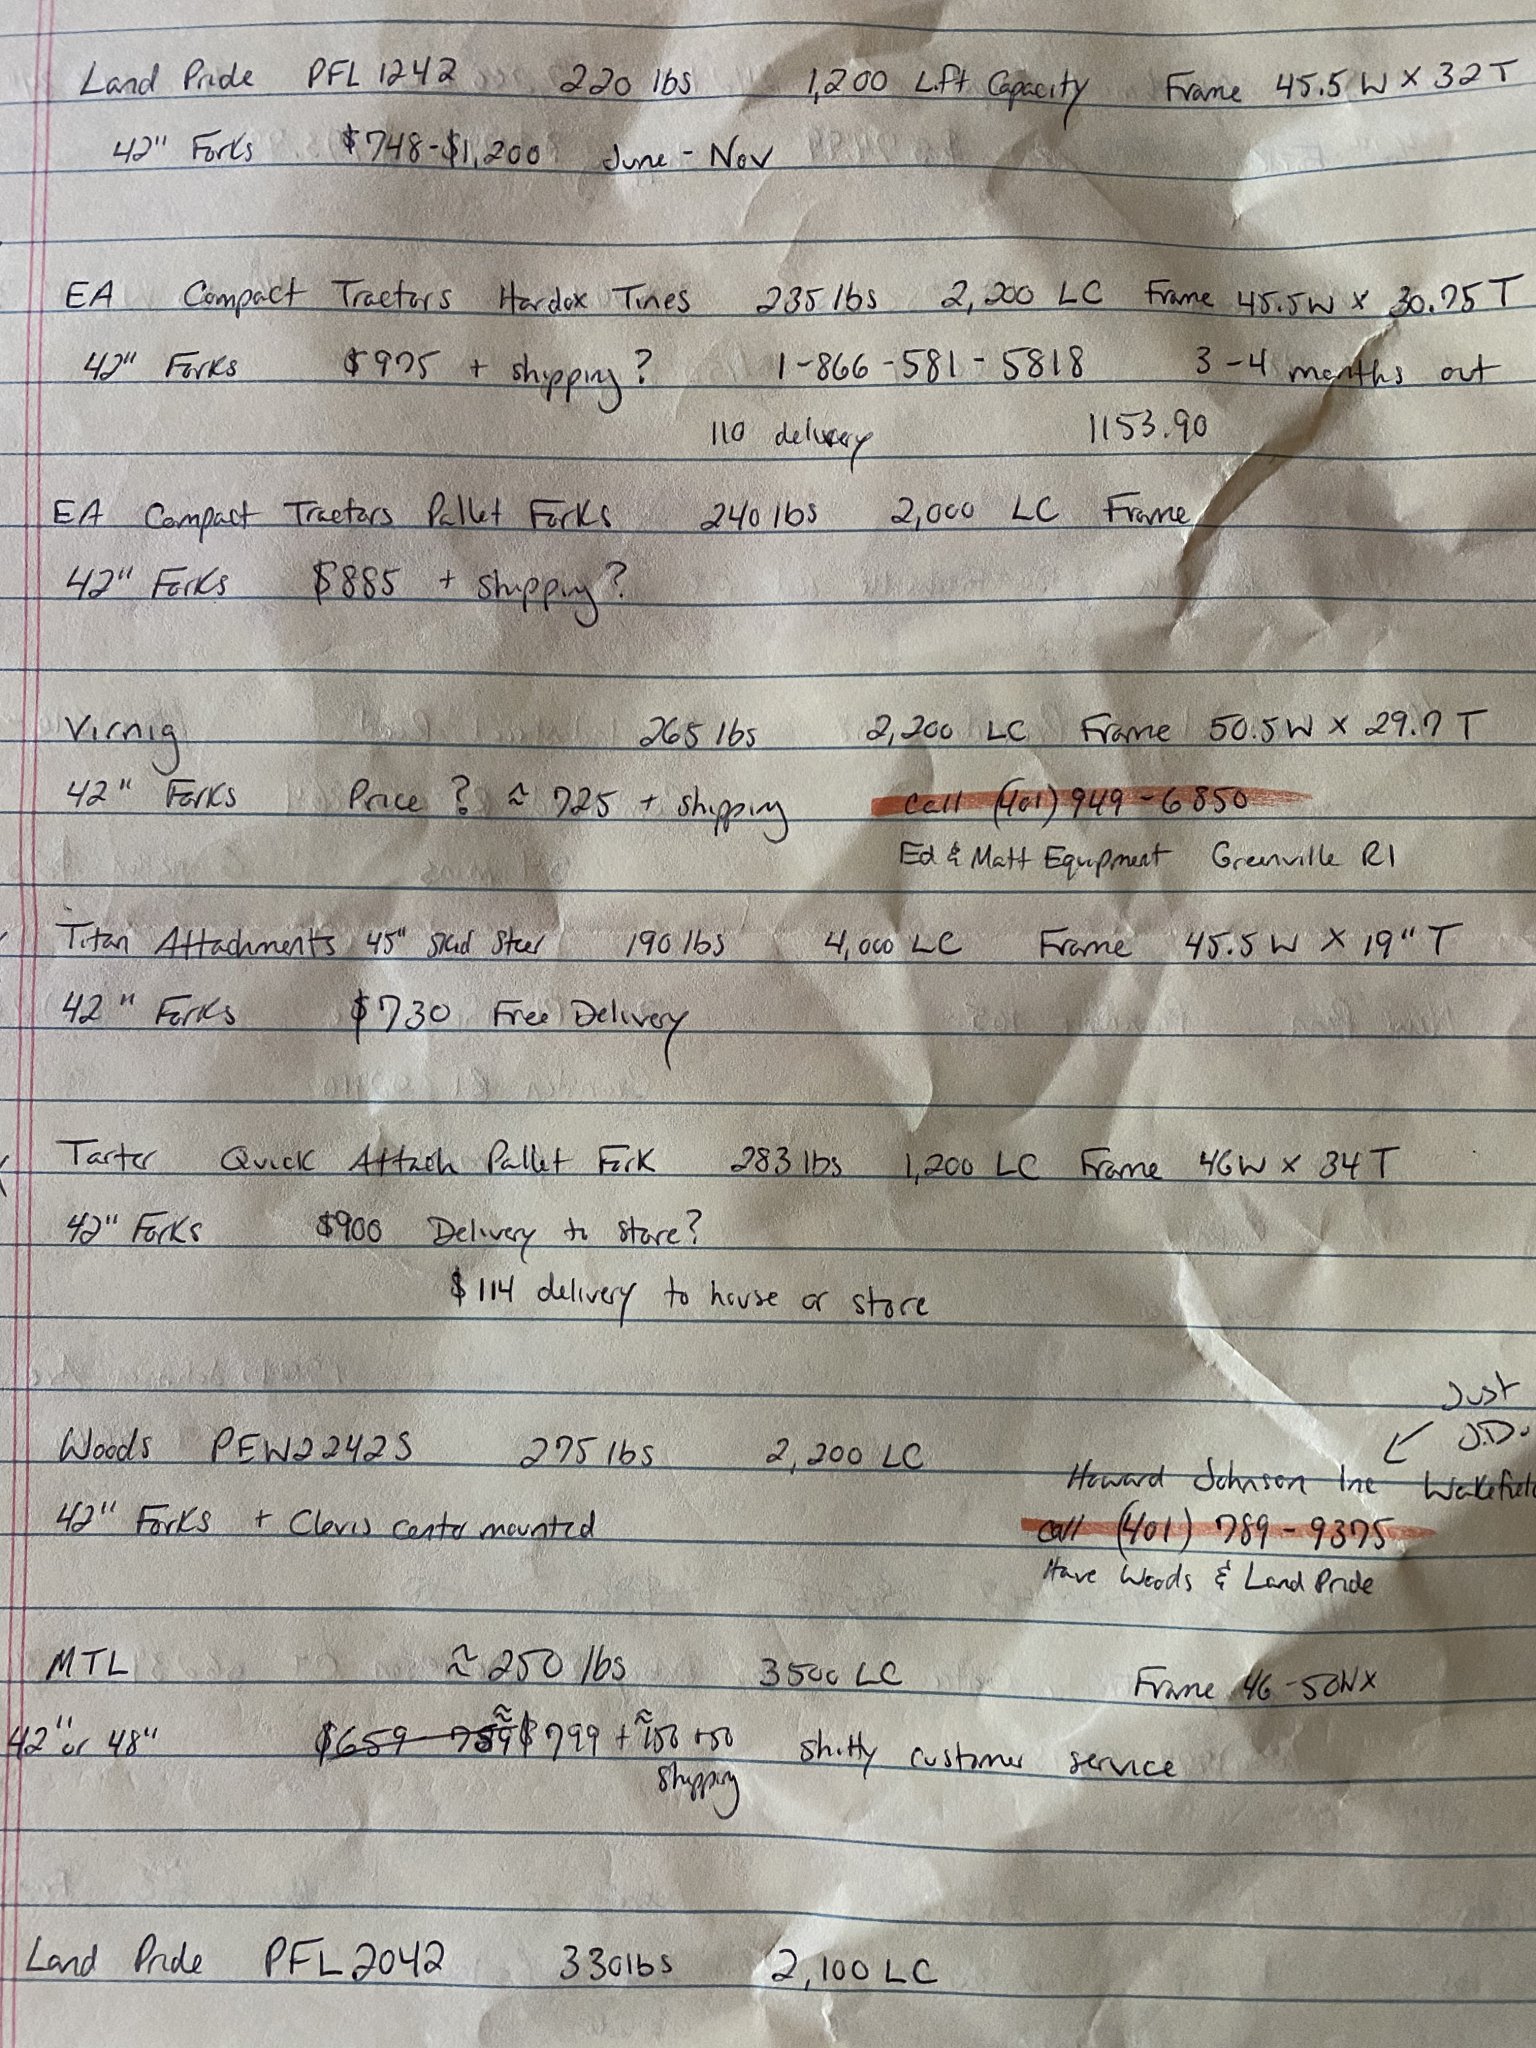 Land Pride PFL 1242 220 lbs 1,200 Lift Capacity Frame 45.5 W X 32 T
42" Forks $748-$1,200 June - Nov
EA Compact Tractors Hardox Tines 235 lbs 2,200 LC Frame 45.5W X 30.75 T
42" Forks $975 + shipping? 1-866-581-5818 3-4 months out
110 delivery 1153.90
EA Compact Tractors Pallet Forks 240 lbs 2,000 LC Frame
42" Forks $885 + shipping?
Virnig 265 lbs 2,200 LC Frame 50.5 W X 29.7 T
42" Forks Price ? ≈ 725 + shipping call (401) 949-6850
Ed & Matt Equipment Greenville RI
Titan Attachments 45" Skid Steer 190 lbs 4,000 LC Frame 45.5 W X 19" T
42" Forks $730 Free Delivery
Tarter Quick Attach Pallet Fork 283 lbs 1,200 LC Frame 46W X 34 T
42" Forks $900 Delivery to store?
$114 delivery to house or store
Just
J.D.
Woods PFW2242S 275 lbs 2,200 LC
Howard Johnson Inc Wakefield
42" Forks + Clevis center mounted call (401) 789-9375
Have Woods & Land Pride
MTL ≈ 250 lbs 3500 LC Frame 46-50W X
42" or 48" $659 - 759 ≈ $799 + ≈150 +50 shitty customer service
shipping
Land Pride PFL2042 330 lbs 2,100 LC